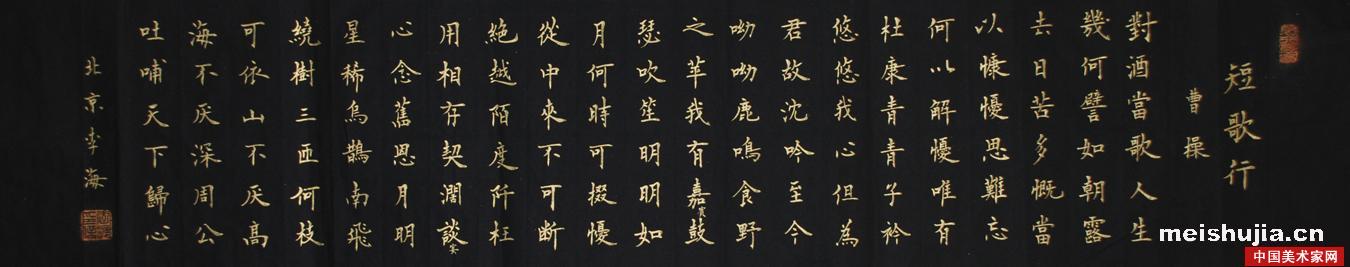 短歌行
曹操
對酒當歌人生
幾何譬如朝露
去日苦多慨當
以慷憂思難忘
何以解憂唯有
杜康青青子衿
悠悠我心但為
君故沈吟至今
呦呦鹿鳴食野
之苹我有嘉賓鼓
瑟吹笙明明如
月何時可掇憂
從中來不可断
絕越陌度阡枉
用相存契濶談宴
心念舊恩月明
星稀烏鵲南飛
繞樹三匝何枝
可依山不厌高
海不厌深周公
吐哺天下歸心
北京李海
meishujia.cn
中国美术家网